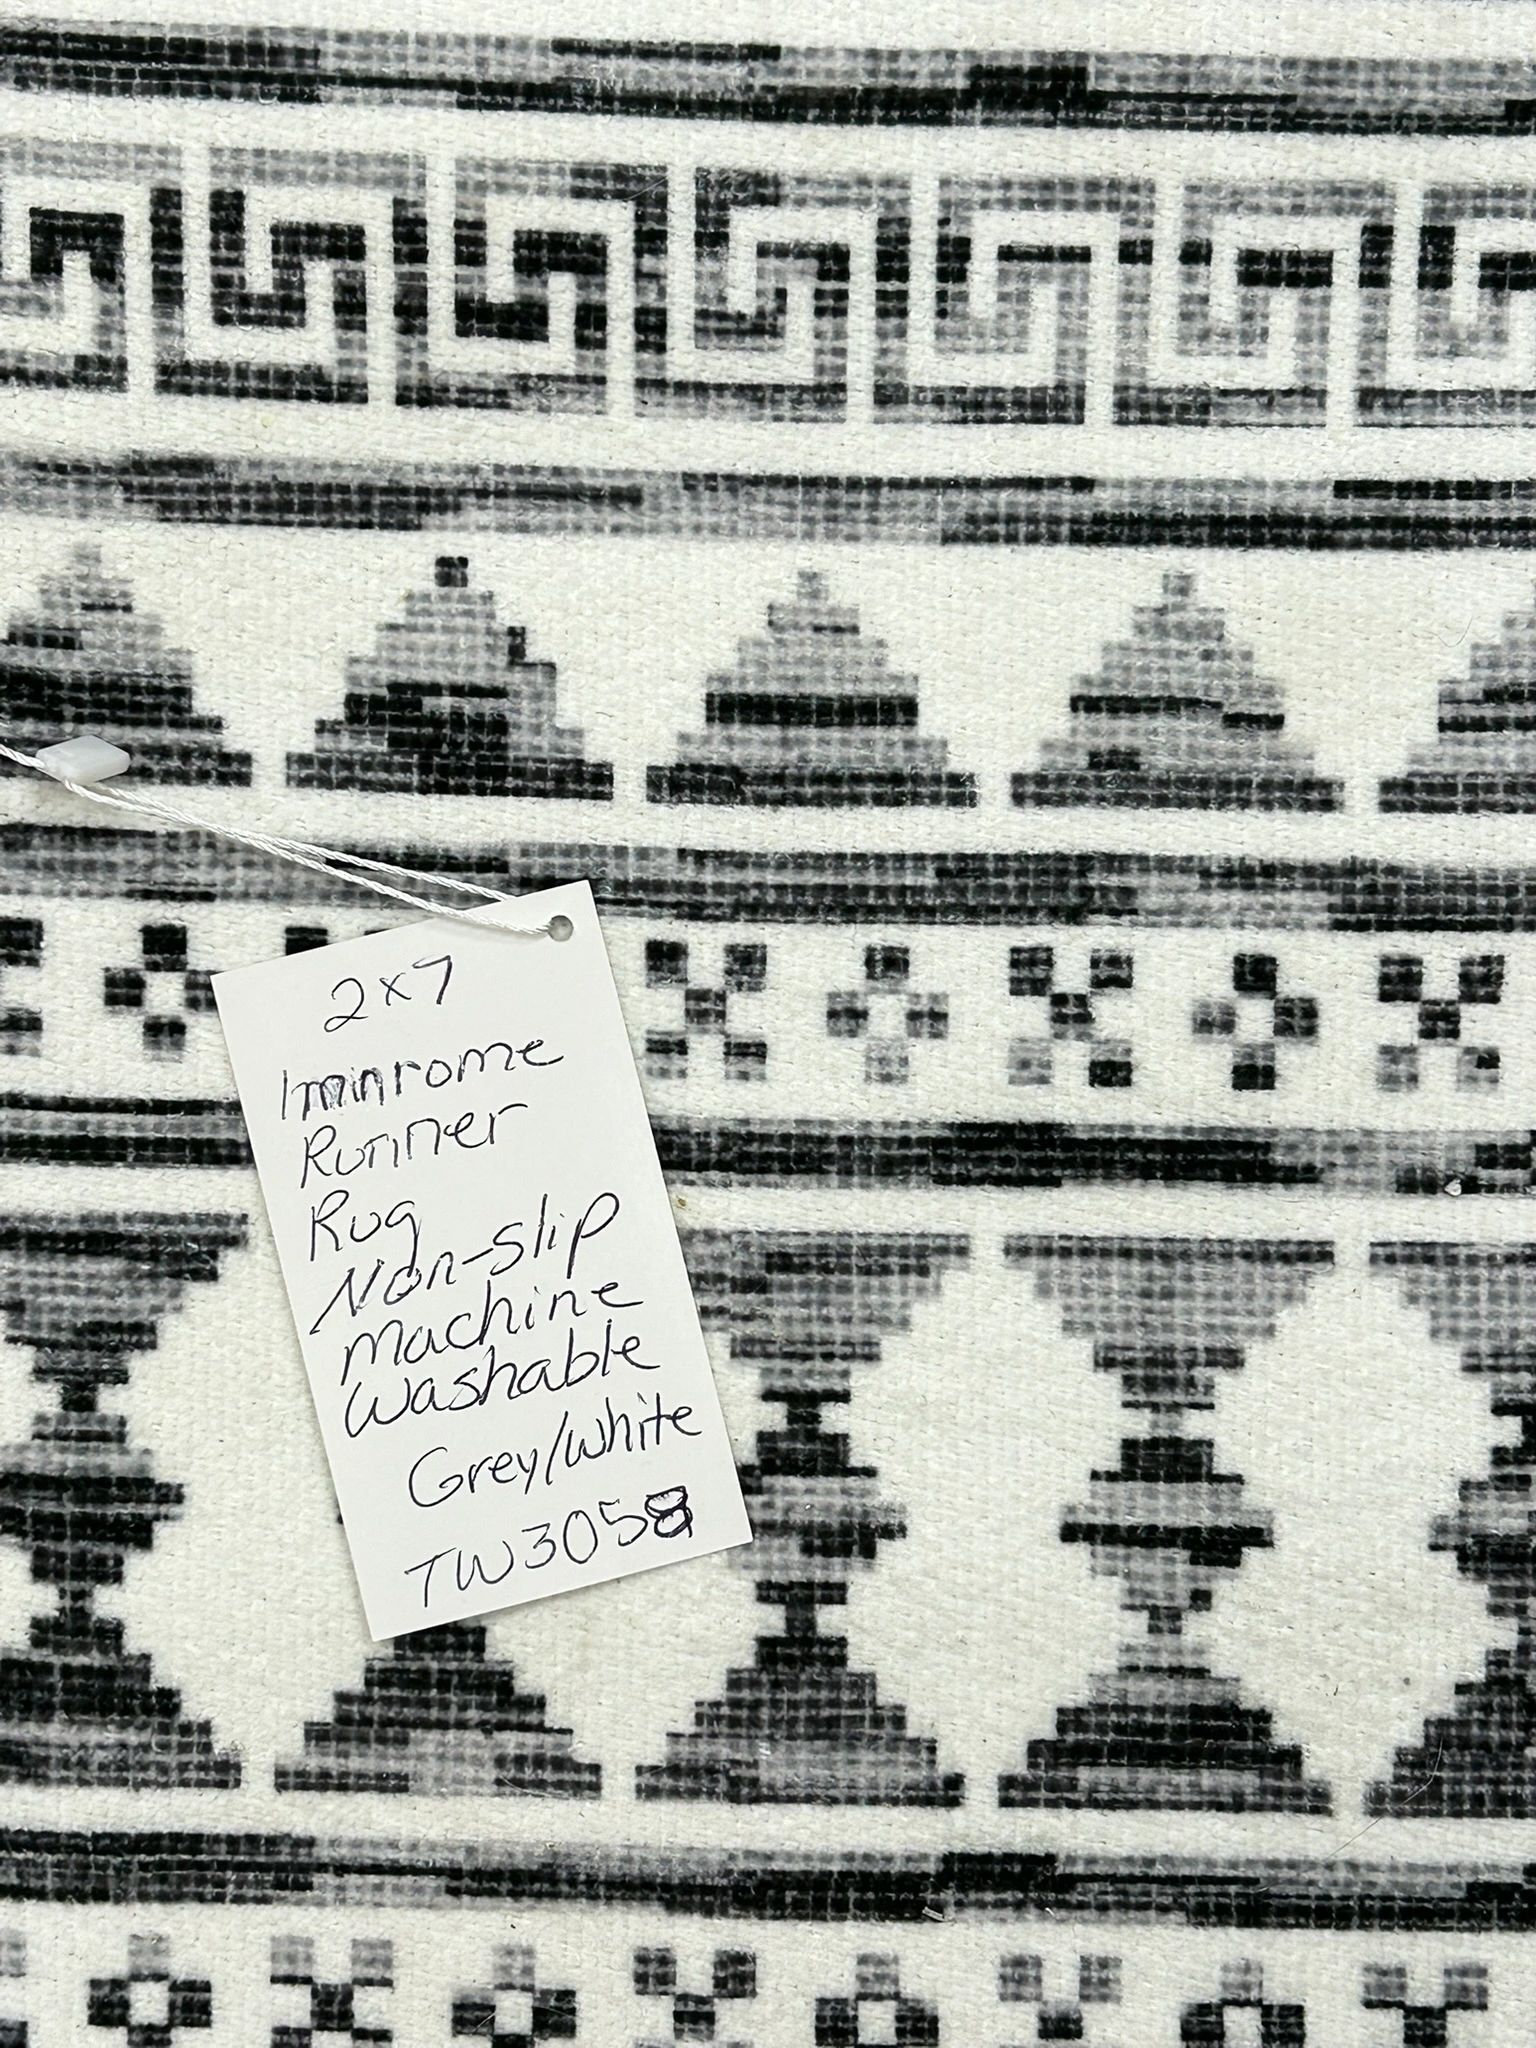 2x7
Iminrome
Runner
Rug
Non-Slip
Machine
Washable
Grey/White
TW3058